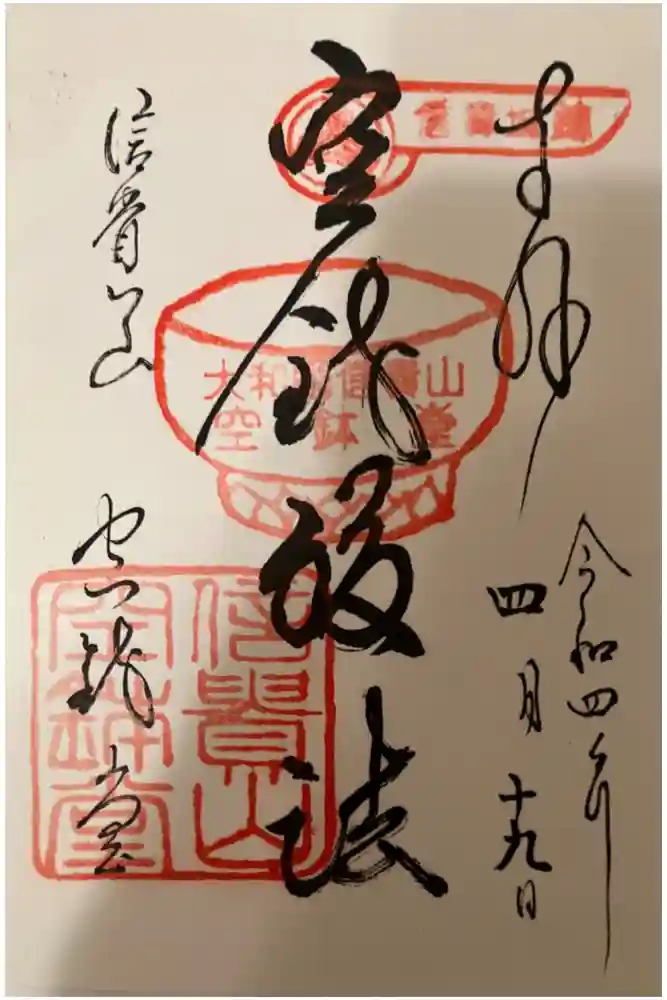 奉拝
令和四年
四月十九日
空鉢護法
大和國信貴山
空鉢堂
信貴山
空鉢堂
信貴山
空鉢堂